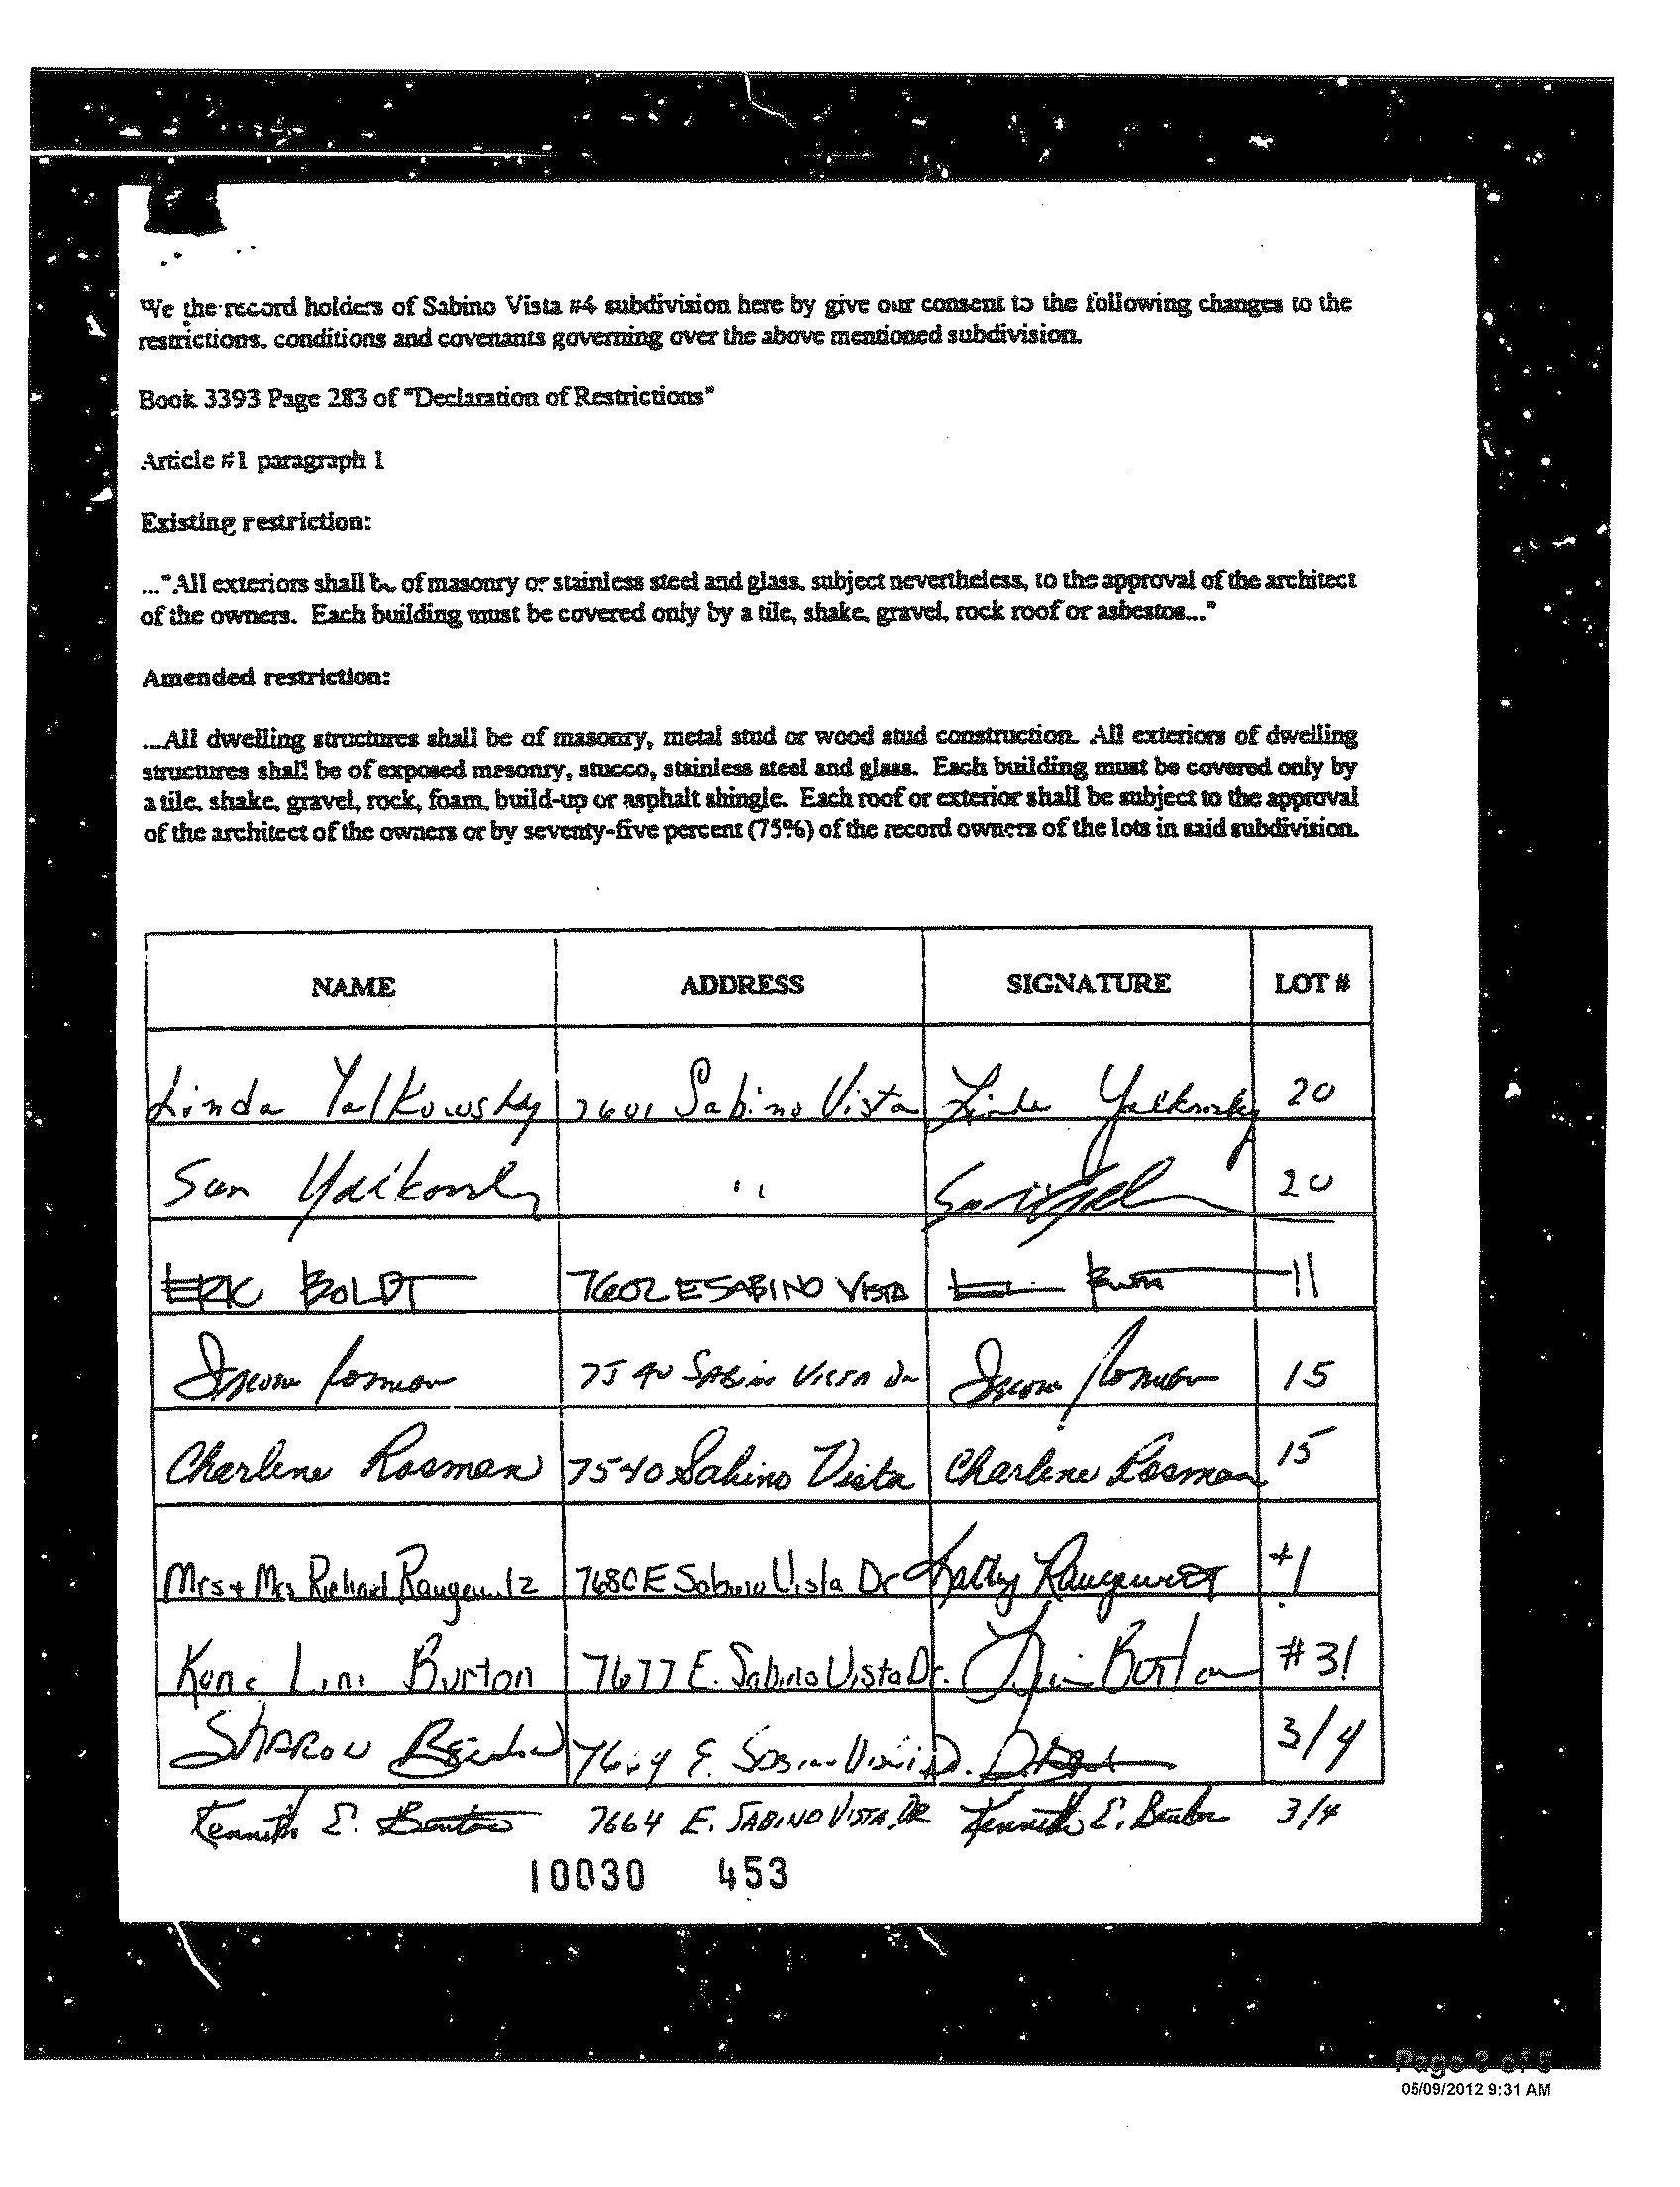 We the record holders of Sabino Vista #4 subdivision here by give our consent to the following changes to the
restrictions, conditions and covenants governing over the above mentioned subdivision.
Book 3393 Page 283 of "Declaration of Restrictions"
Article #1 paragraph 1
Existing restriction:
..."All exteriors shall be of masonry or stainless steel and glass, subject nevertheless, to the approval of the architect
of the owners. Each building must be covered only by a tile, shake, gravel, rock roof or asbestos..."
Amended restriction:
...All dwelling structures shall be of masonry, metal stud or wood stud construction. All exteriors of dwelling
structures shall be of exposed masonry, stucco, stainless steel and glass. Each building must be covered only by
a tile, shake, gravel, rock, foam, build-up or asphalt shingle. Each roof or exterior shall be subject to the approval
of the architect of the owners or by seventy-five percent (75%) of the record owners of the lots in said subdivision.
NAME ADDRESS SIGNATURE LOT #
Linda Yalkowsky 7601 Sabino Vista Linda Yalkowsky 20
Sam Yalkowsky " 20
ERIC BOLDT 7602 E SABINO VISTA 11
7540 SABINO VISTA Dr 15
Charlene Rosman 7540 Sabino Vista Charlene Rosman 15
Mrs + Mrs Richard 7680 E Sabino Vista Dr Kathy
Burton 7677 E. Sabino Vista Dr. Burton #31
SHARON E. Sabino Vista D. 3/4
Kenneth E. Benton 7664 E. SABINO VISTA DR Kenneth E. Benton 3/4
10030 453
Page 2 of 5
05/09/2012 9:31 AM